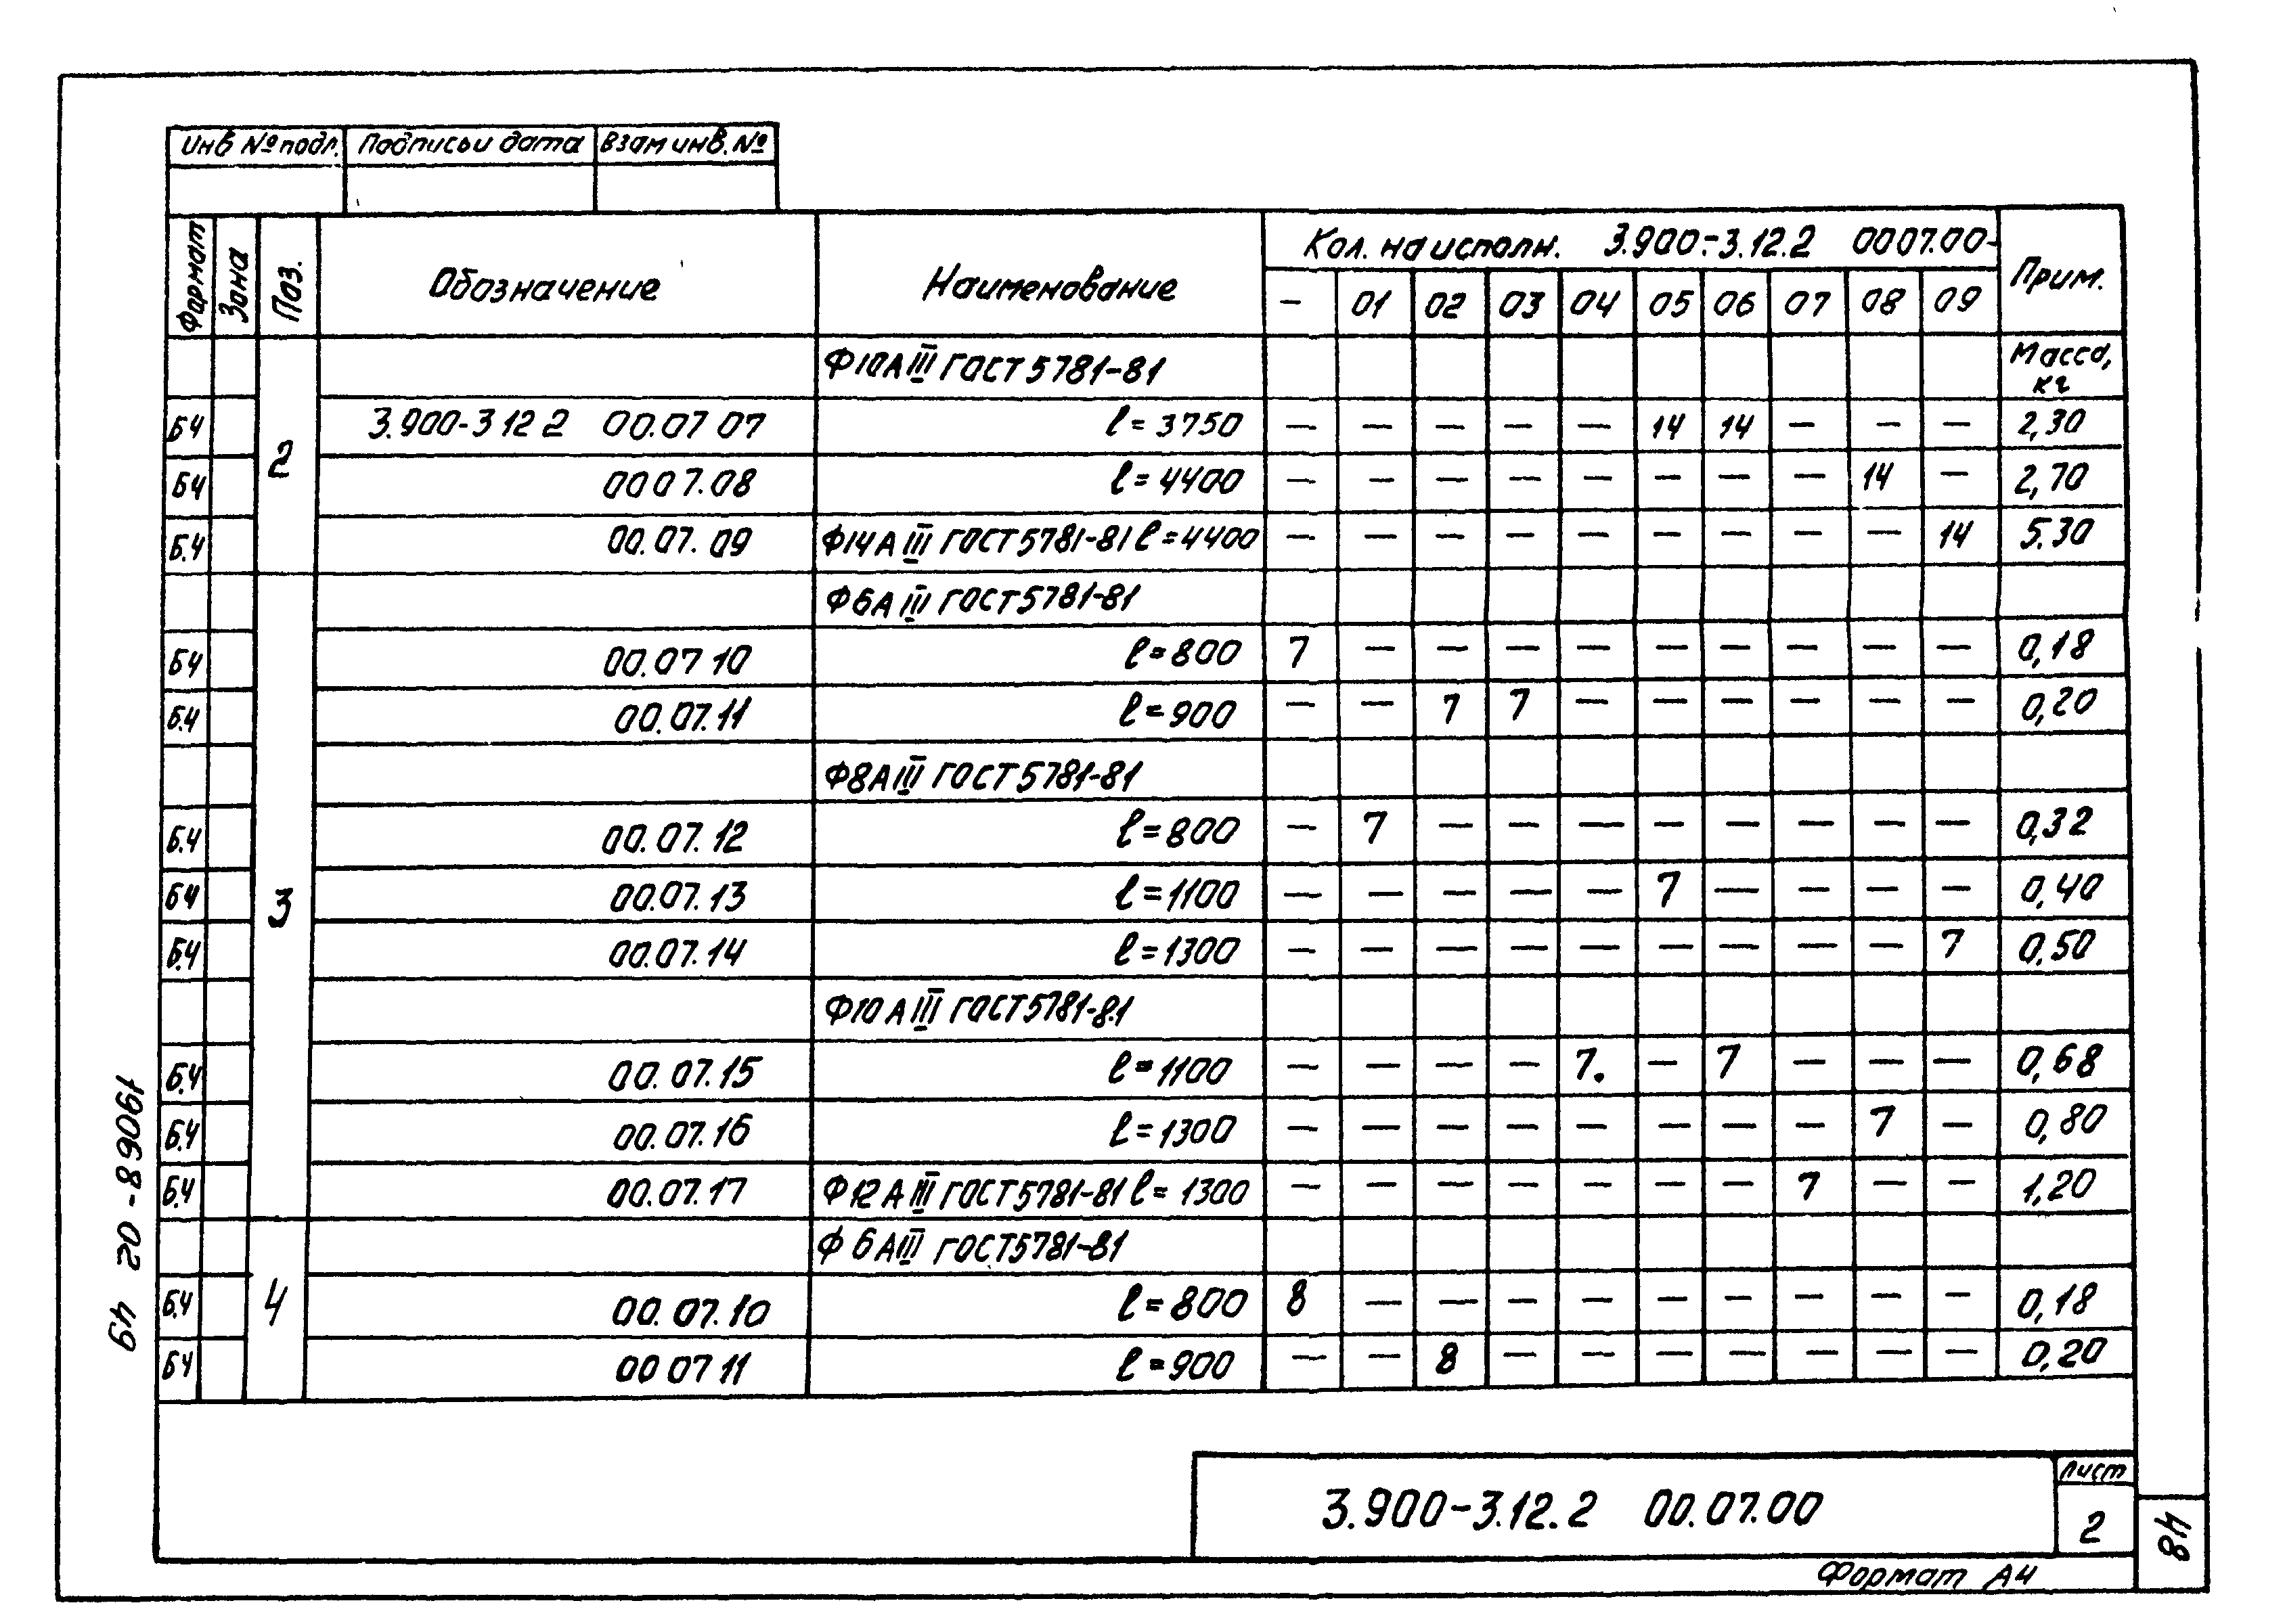 Инв № подл. Подпись и дата Взам инв. №
Формат Зона Поз. Обозначение Наименование Кол. на исполн. 3.900-3.12.2 0007.00- Прим.
- 01 02 03 04 05 06 07 08 09
Ф10АIII ГОСТ 5781-81 Масса, кг
2
БЧ 3.900-3 12 2 00.07 07 l = 3750 — — — — — 14 14 — — — 2,30
БЧ 0007.08 l = 4400 — — — — — — — — 14 — 2,70
Б.Ч 00.07.09 Ф14АIII ГОСТ 5781-81 l = 4400 — — — — — — — — — 14 5.30
Ф6АIII ГОСТ 5781-81
3
БЧ 00.07 10 l = 800 7 — — — — — — — — — 0,18
Б.Ч 00.07.11 l = 900 — — 7 7 — — — — — — 0,20
Ф8АIII ГОСТ 5781-81
Б.Ч 00.07.12 l = 800 — 7 — — — — — — — — 0,32
БЧ 00.07.13 l = 1100 — — — — — 7 — — — — 0,40
Б.Ч 00.07.14 l = 1300 — — — — — — — — — 7 0,50
Ф10АIII ГОСТ 5781-8.1
Б.Ч 00.07.15 l = 1100 — — — — 7. — 7 — — — 0,68
Б.Ч 00.07.16 l = 1300 — — — — — — — — 7 — 0,80
Б.Ч 00.07.17 Ф12АIII ГОСТ 5781-81 l = 1300 — — — — — — — 7 — — 1,20
Ф 6АIII ГОСТ 5781-81
4
Б.Ч 00.07.10 l = 800 8 — — — — — — — — — 0,18
БЧ 00 07 11 l = 900 — — 8 — — — — — — — 0,20
19068-02 49
3.900-3.12.2 00.07.00
Лист
2
48
Формат А4